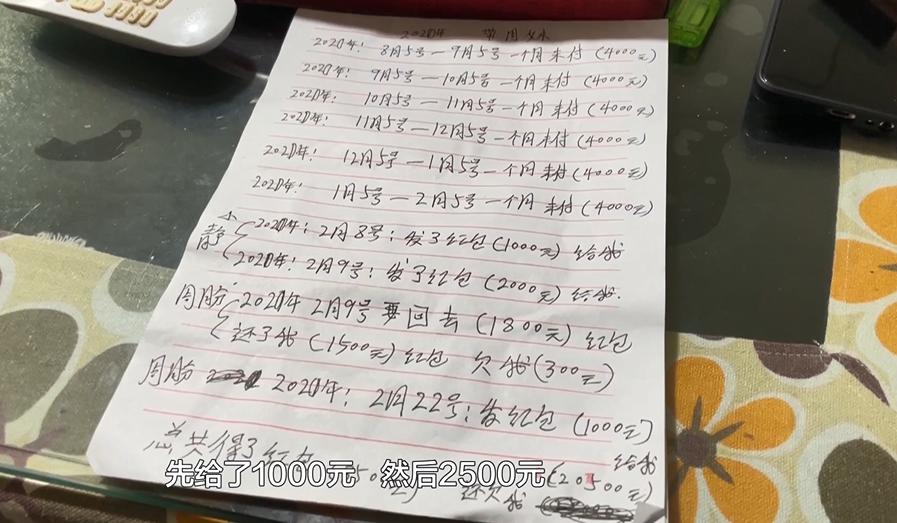 2020年 带周
2020年: 8月5号—9月5号一个月未付(4000元)
2020年: 9月5号—10月5号一个月未付(4000元)
2020年: 10月5号—11月5号一个月未付(4000元)
2020年: 11月5号—12月5号一个月未付(4000元)
2020年: 12月5号—1月5号一个月未付(4000元)
2021年: 1月5号—2月5号一个月未付(4000元)
小静 2021年: 2月8号: 发了红包(1000元)给我
2021年: 2月9号: 发了红包(2000元)给我.
周盼: 2021年2月9号要回去(1800元)红包
还了我(1500元)红包 欠我(300元)
周盼 2021年: 2月22号: 发红包(1000元)
给我
总共得了红包
还欠我 (20500元)
先给了1000元 然后2500元